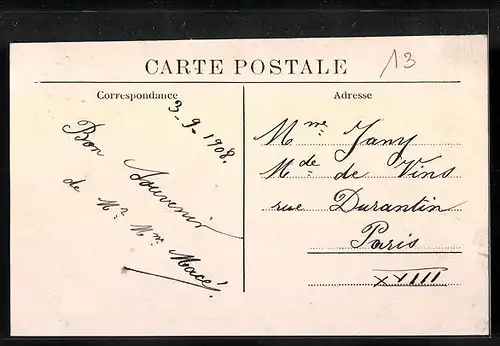 13
CARTE POSTALE
Correspondance
Adresse
3-9-1908.
Bon
Souvenir
de Mr. Mme Macé.
Mme Jany
Mde de Vins
rue Durantin
Paris
XVIII